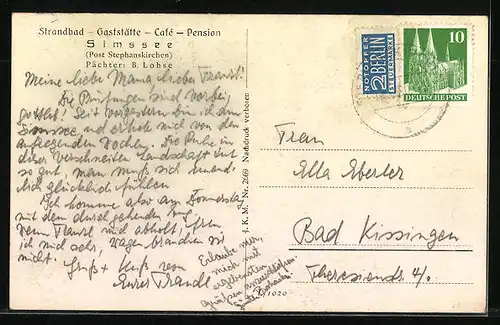 Strandbad – Gaststätte – Café – Pension
Simssee
(Post Stephanskirchen)
Pächter: B. Lohse
Meine liebe Mama, lieber Franzl!
Die Prüfungen sind vorbei,
gottlob! Seit vorgestern bin ich am
Simssee und erhole mich von den
aufregenden Wochen. Die Ruhe in
dieser verschneiten Landschaft tut
so gut, man muß sich
glücklich fühlen
Ich komme also am Donnerstag
mit dem durchgehenden Zug
Wenn Franzl mich abholt,
ich mich sehr, Wagen brauchen wir
nicht. Gruß + Kuß von
Eurer
Erlaube mir,
mich mit
ergebensten
Grüßen
J. K. M. Nr. 2669 Nachdruck verboten
1020
NOTOPFER
2 BERLIN
STEUERMARKE
10
DEUTSCHE POST
Frau
Ella Eberler
Bad Kissingen
Theresienstr. 4/.